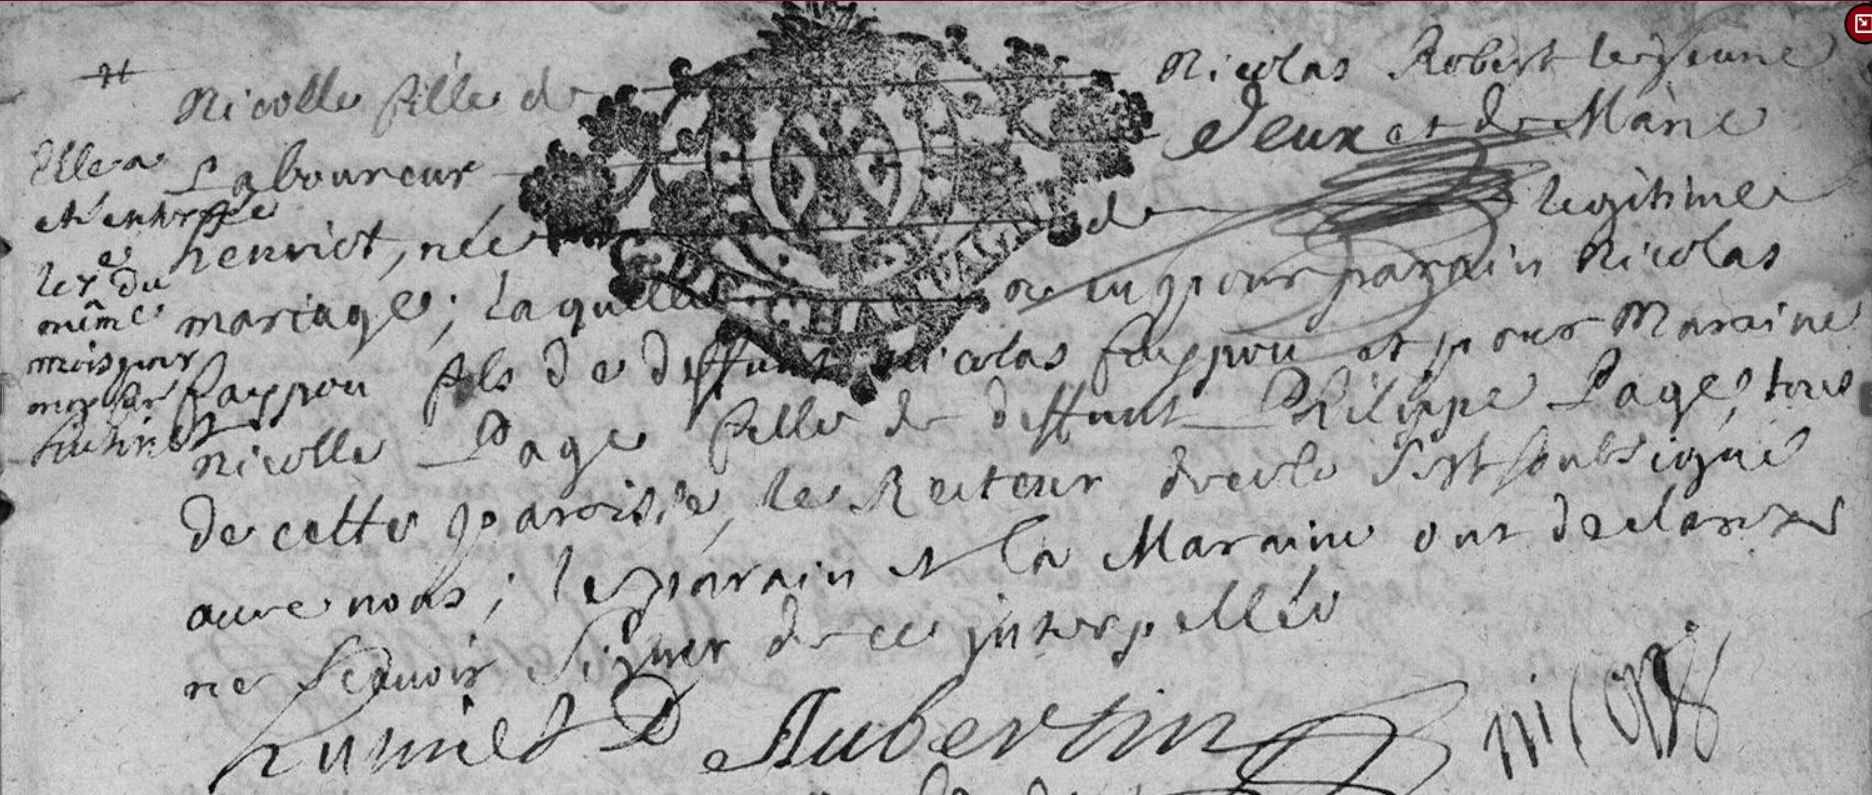 Nicolle fille de Nicolas Robert le jeune
Laboureur Deux et de Marie
henriot, née de legitime
mariage; Laquelle a eu pour parain Nicolas
fayppou fils de deffunt nicolas fayppou et pour Maraine
Nicolle Page fille de deffunt Philippe Page, tous
de cette paroisse, le Recteur decole s'est soubsigné
avec nous; le parain et la Maraine ont declarez
ne scavoir signer de ce interpellés
Aubertin
Elle a
eté
le du
même
mois par
moy
CHAMPAGNE